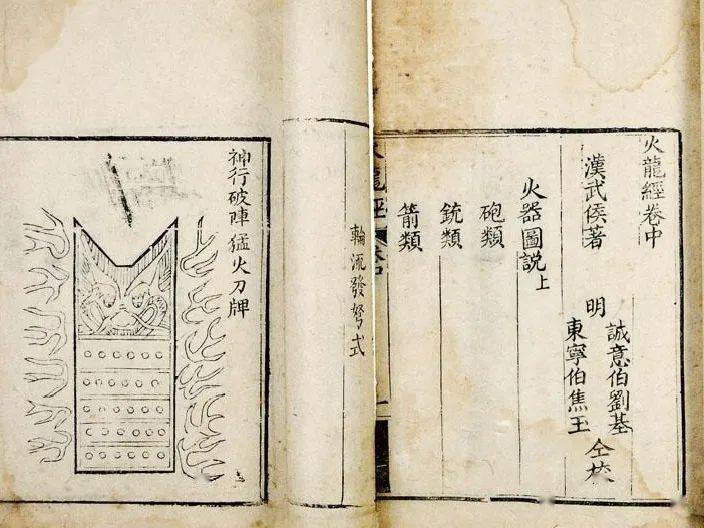 火龍經卷中
漢武侯著
明
誠意伯劉基
東寧伯焦玉
仝校
火器圖說上
砲類
銃類
箭類
火龍經
輪流發弩式
神行破陣猛火刀牌